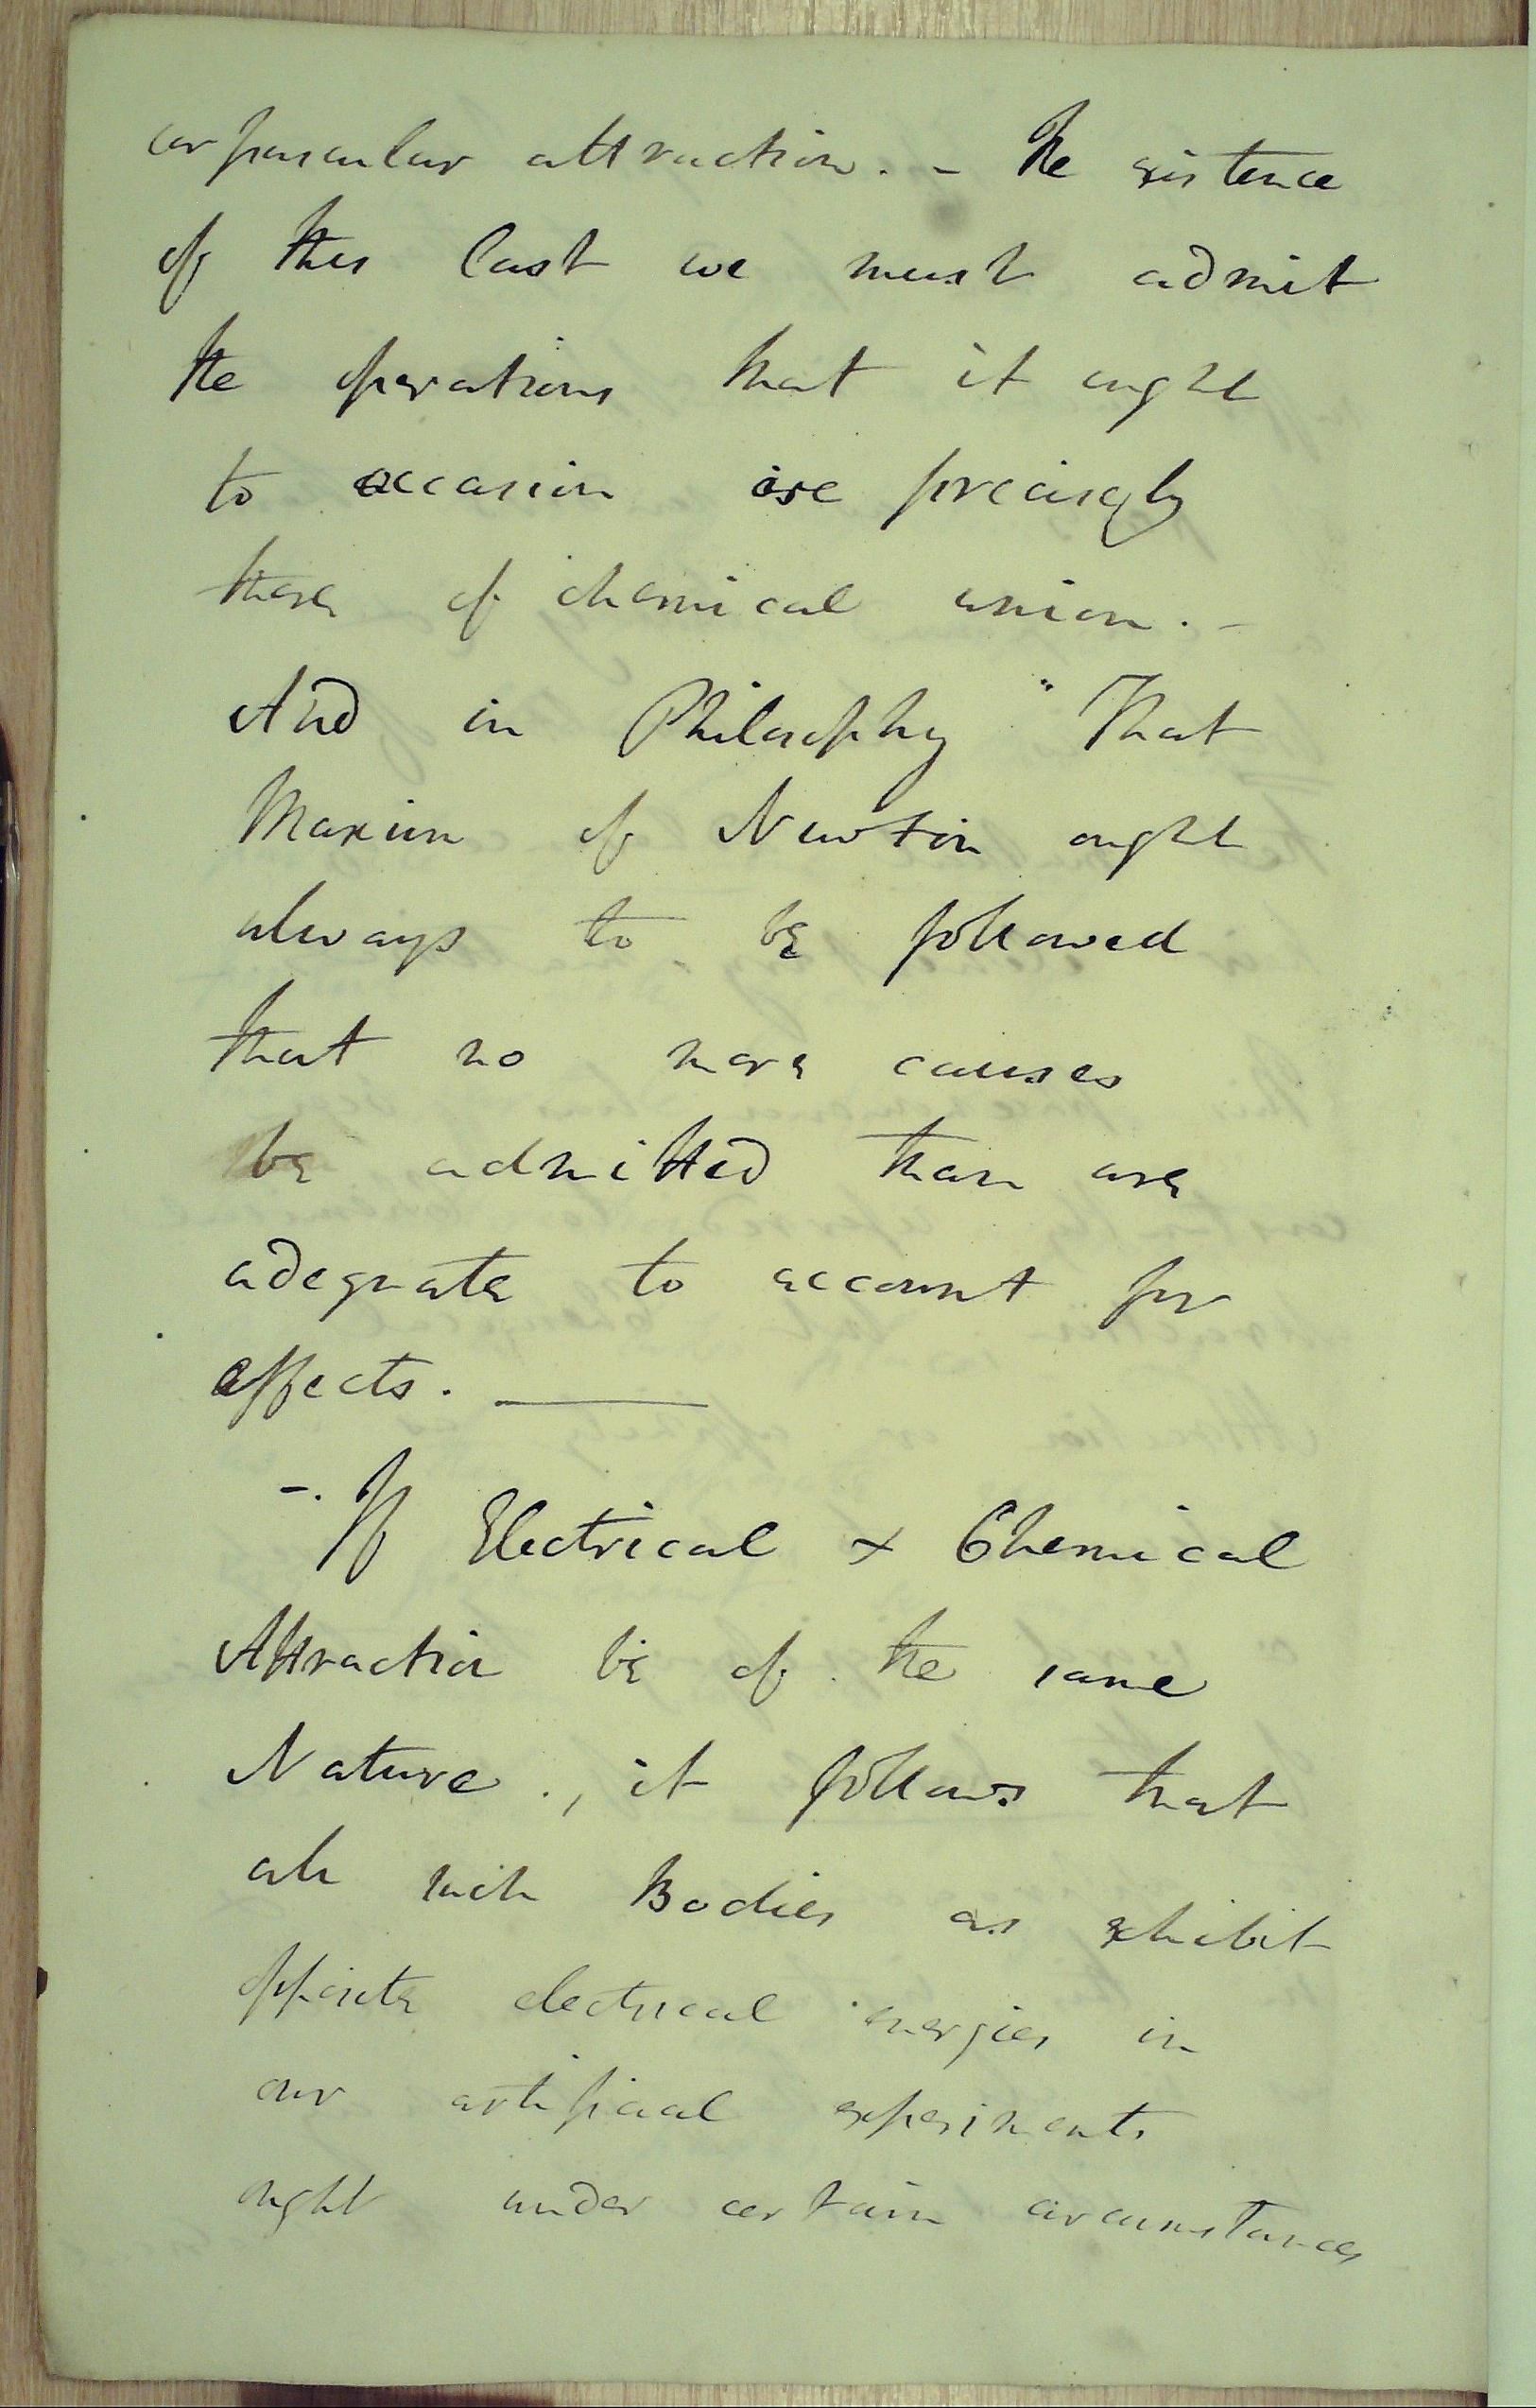 corpuscular attraction. - The existence
of this last we must admit
the operations that it ought
to occasion are precisely
those of chemical union. -
And in Philosophy "That
Maxim of Newton ought
always to be followed
that no more causes
be admitted than are
adequate to account for
effects. ———
-. If Electrical & Chemical
Attraction be of the same
Nature., it follows that
all such Bodies as exhibit
opposite electrical energies in
our artificial experiments
ought under certain circumstances